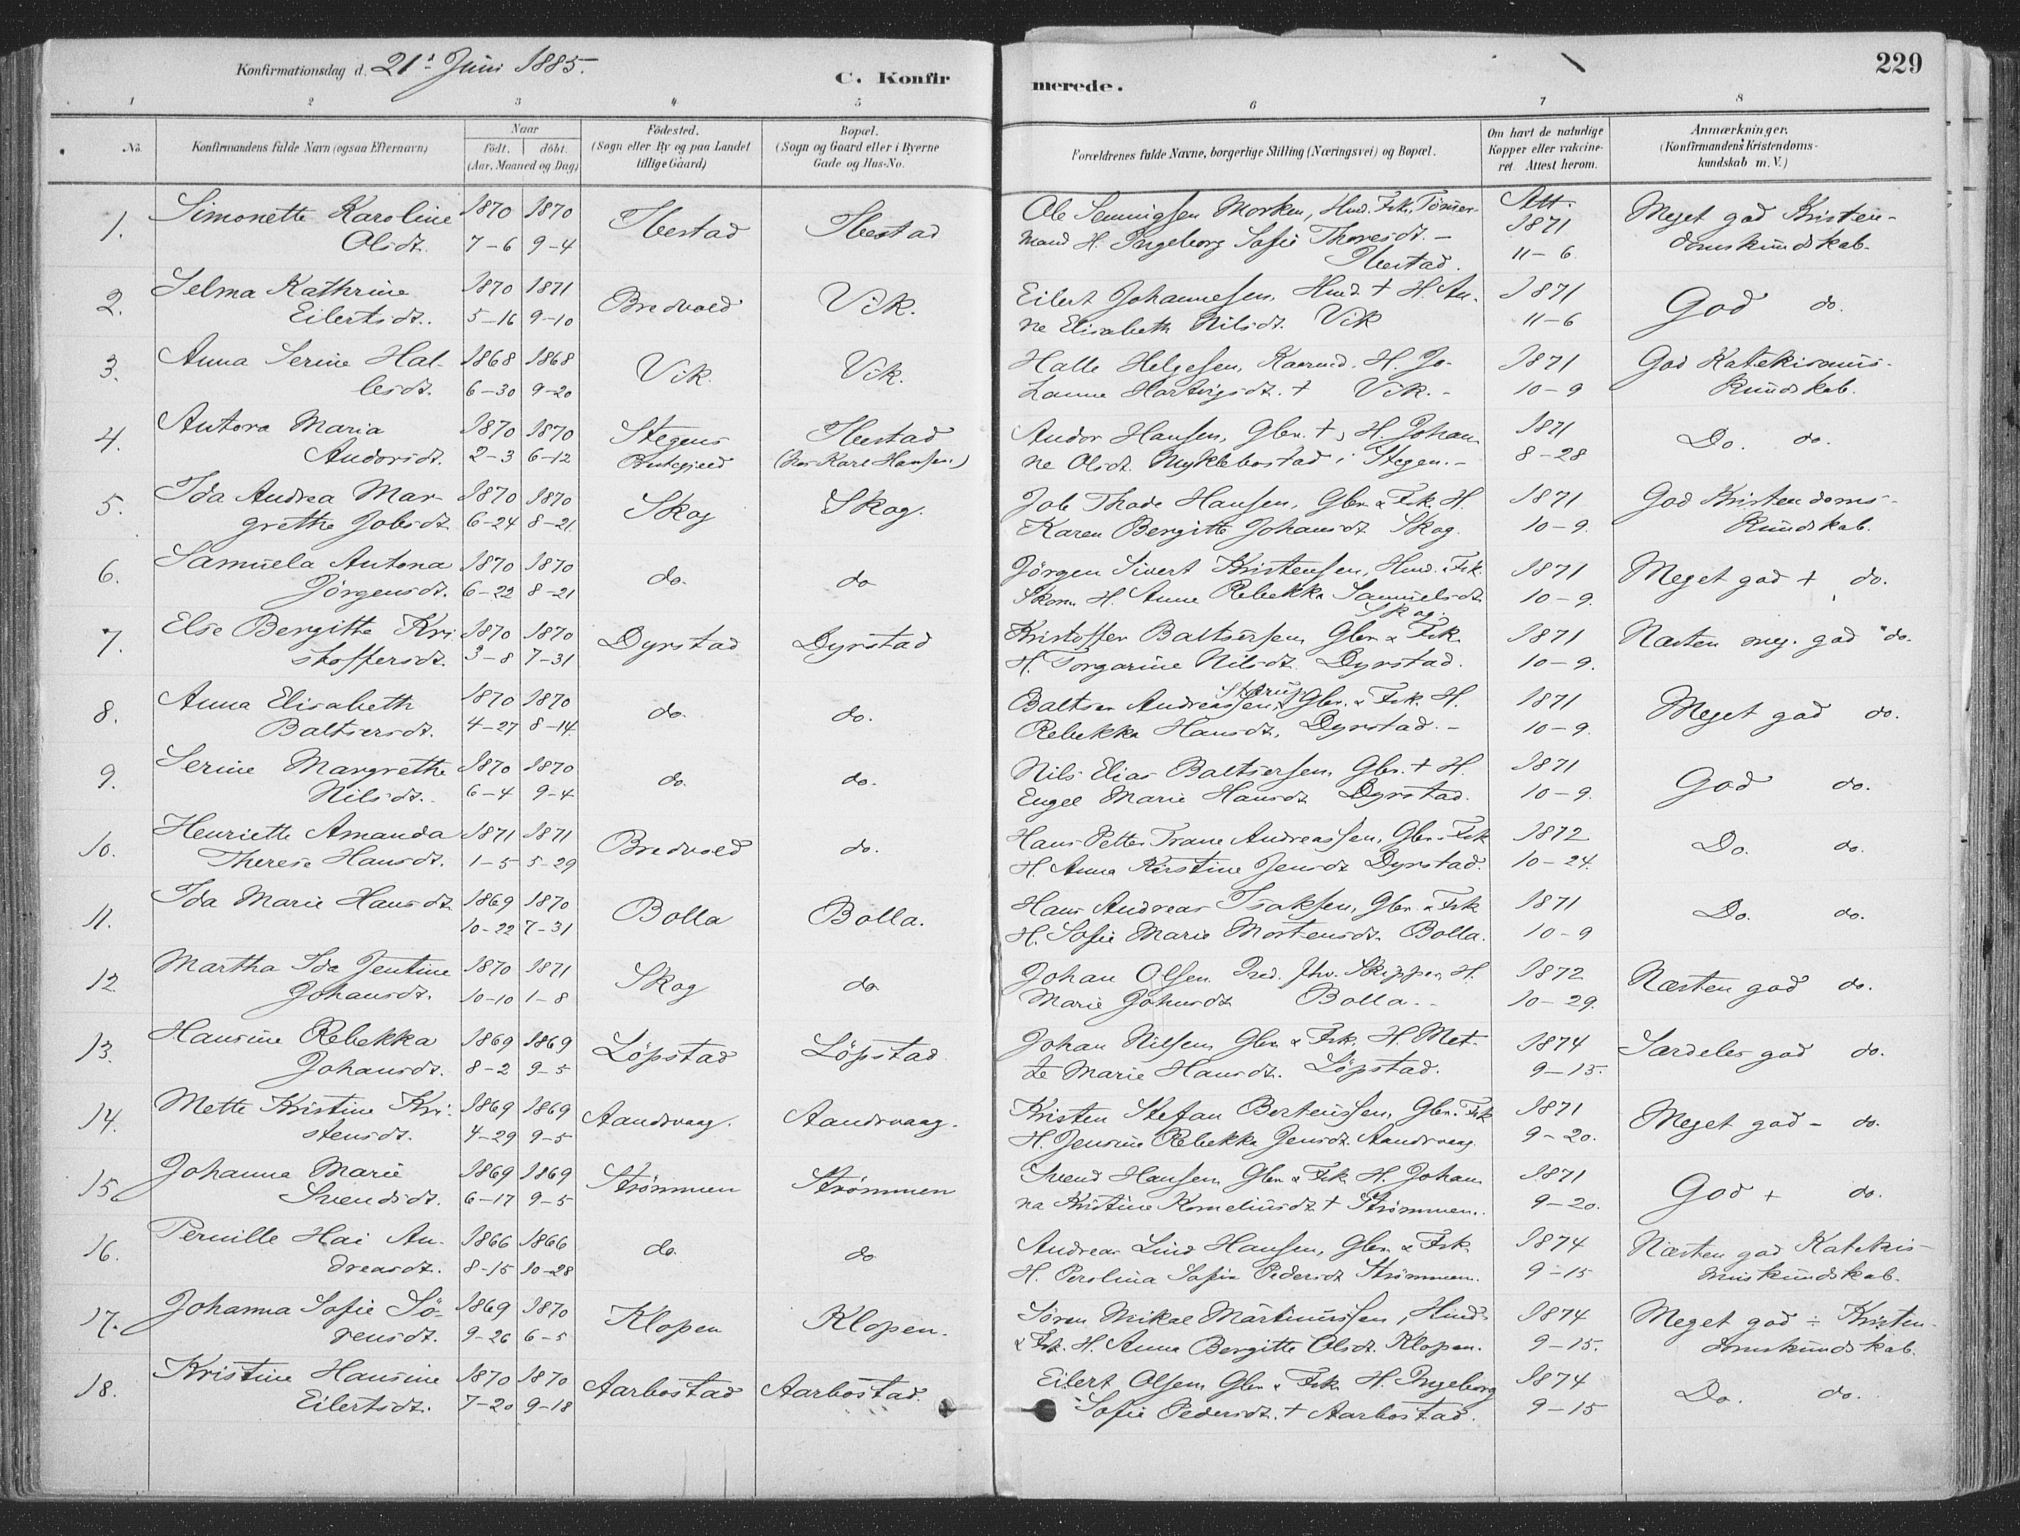 Konfirmationsdag d. 21de Juni 1885.
C. Konfirmerede.
229
1 2 3 4 5 6 7 8
No.
Konfirmandens fulde Navn (ogsaa Efternavn)
Naar
født. døbt.
(Aar, Maaned og Dag)
Fødested.
(Sogn eller By og paa Landet
tillige Gaard)
Bopæl.
(Sogn og Gaard eller i Byerne
Gade og Hus-No.
Forældrenes fulde Navne, borgerlige Stilling (Næringsvei) og Bopæl.
Om havt de naturlige
Kopper eller vakcine-
ret. Attest herom.
Anmærkninger.
(Konfirmandens Kristendoms-
kundskab m. V.)
1. Simonette Karoline 1870 1870 Ibestad Ibestad Ole Morken, Hmd. Fsk. Tömmer- Att. 1871 Meget god Kristen-
Olsdt. 7-6 9-4 mand H. Ingeborg Sofie Thoresdt. - Ibestad. 11-6. domskundskab.
2. Selma Kathrine 1870 1871 Bredvold Vik. Eilert Johannesen, Hmd + H. An- 1871 God do.
Eilertsdt. 5-16 9-10 ne Elisabeth Nilsdt. Vik 11-6
3. Anna Serine Hal- 1868 1868 Vik. Vik. Halle Helgesen, H. Jo- 1871 God Katekismus-
lesdt. 6-30 9-20 Hartvigsdt. + Vik. - 10-9 Kundskab.
4. Antora Maria 1870 1870 Stegens Ibestad Andor Hansen, Gbr. +, H. Johan- 1871 Do. do.
Andorsdt. 2-3 6-12 Præstegjeld (hos Karl Hansen) ne Olsdt. Myklebostad i Stegen. - 8-28
5. Ida Andrea Mar- 1870 1870 Skog Skog. Job Thode Hansen, Gbr. & Fsk. H. 1871 God Kristendoms-
grethe Jobsdt. 6-24 8-21 Karen Bergitte Johansdt. Skog. 10-9. Kundskab.
6. Samuela Antona 1870 1870 do. do Jørgen Sivert Kristensen, Hmd. & Fsk. 1871 Meget god + do.
Jørgensdt. 6-22 8-21 Skom. H. Anne Rebekka Samuelsdt. Skog. 10-9.
7. Else Bergitte Kri- 1870 1870 Dyrstad Dyrstad Kristoffer Baltsersen, Gbr & Fsk. 1871 Næsten meg. god do.
stoffersdt. 3-8 7-31 H. Torgarine Nilsdt. Dyrstad. 10-9.
8. Anna Elisabeth 1870 1870 do. do. Baltser Andreassen Gbr. & Fsk. H. 1871 Meget god do.
Baltsersdt. 4-27 8-14. Rebekka Hansdt. Dyrstad. - 10-9.
9. Serine Margrethe 1870 1870 do. do. Nils Elias Baltsersen, Gbr. + H. 1871 God do.
Nilsdt. 6-4 9-4 Engel Marie Hansdt. Dyrstad. 10-9.
10. Henriette Amanda 1871 1871 Bredvold do. Hans Petter Trane Andreassen, Gbr. Fsk 1872 Do. do.
Therese Hansdt. 1-5 5-29 H. Anna Kirstine Jensdt Dyrstad. 10-24.
11. Ida Marie Hansdt. 1869 1870 Bolla Bolla. Hans Andreas Isaksen, Gbr. & Fsk 1871 Do. do.
10-22 7-31 H. Sofie Marie Mortensdt. Bolla. 10-9
12 Martha Ida Jentine 1870 1871 Skog do Johan Olsen Skipper, H. 1872 Næsten god do.
Johansdt. 10-10 1-8 Marie Johnsdt Bolla. - 10-29.
13. Hansine Rebekka 1869 1869 Löpstad Löpstad Johan Nilsen, Gbr & Fsk. H. Met- 1874 Særdeles god do.
Johansdt. 8-2 9-5 te Marie Hansdt. Löpstad. 9-15.
14. Mette Kristine Kri- 1869 1869 Aandsvaag. Aandsvaag. Kristen Stefan Berteussen, Gbr. Fsk 1871 Meget god - do.
stensdt. 4-29 9-5 H. Jensine Rebekka Jensdt. Aandsvaag 9-20.
15 Johanna Marie 1869 1869 Strömmen Strömmen Svend Hansen, Gbr & Fsk. H. Johan- 1871 God + do.
Svendsdt. 6-17 9-5 na Kristine Korneliusdt + Strömmen. 9-20.
16. Pernille Hai An- 1866 1866 do. do Andreas Lind Hansen, Gbr & Fsk. 1874 Næsten god Katekis-
dreasdt. 8-15 10-28 H. Perolina Sofie Pedersdt Strömmen. 9-15 muskundskab.
17. Johanna Sofie Sö- 1869 1870 Klopen Klopen. Sören Mikal Martinussen, Hmd. 1874 Meget god ÷ Kristen-
rensdt. 9-26 6-5 & Fsk. H. Anna Bergitte Olsdt. Klopen. 9-15. domskundskab.
18. Kristine Hansine 1870 1870 Aarbostad Aarbostad. Eilert Olsen, Gbr & Fsk. H. Ingeborg 1874 Do. do.
Eilertsdt. 7-20 9-18 Sofie Pedersdt. + Aarbostad. 9-15